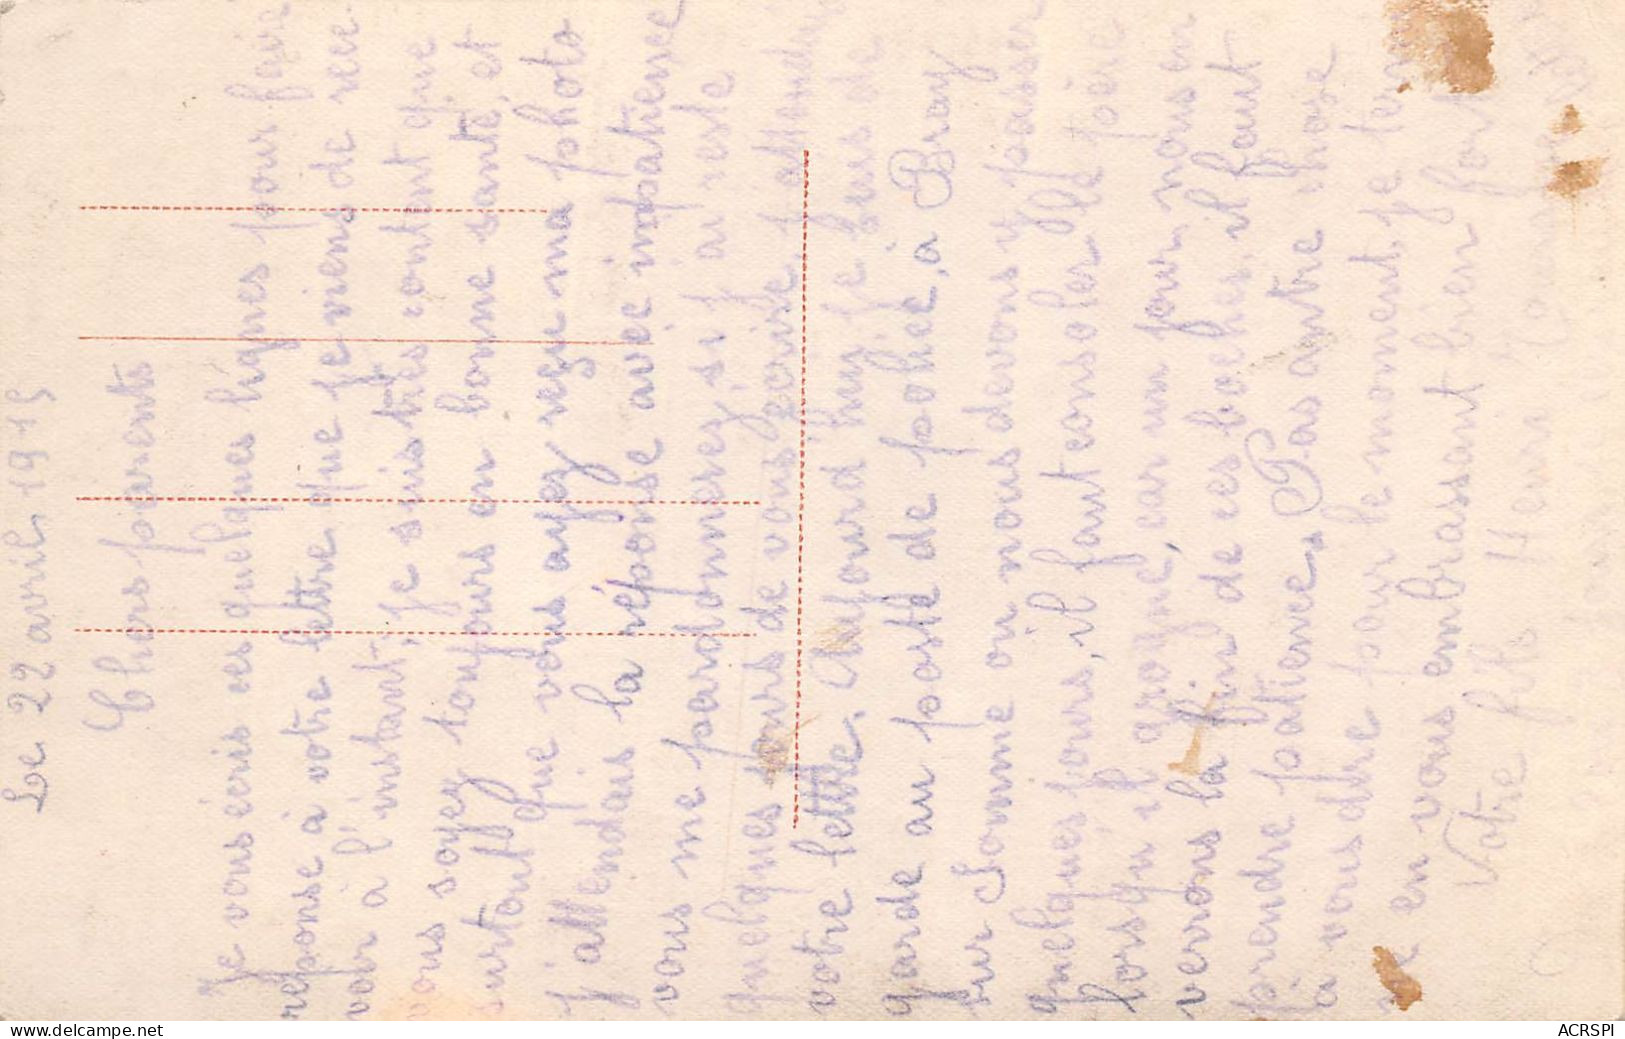 Le 22 avril 1915
Chers parents
Je vous écris ces quelques lignes pour faire
reponse à votre lettre que je viens de rece
voir à l'instant, Je suis très content que
vous soyez toujours en bonne santé, et
surtout que vous ayez reçu ma photo
j'attendais la réponse avec impatience
vous me pardonnerez, si j'ai resté
quelques jours de vous écrire, j'attendais
votre lettre. Aujourd'huy, je suis de
garde au poste de police, à Bray
sur Somme ou nous devons y passer
quelques jours, il faut consoler le père
lorsqu'il grogne, car un jour nous en
verrons la fin de ces boches, il faut
prendre patience, Pas autre chose
à vous dire pour le moment, je termi
ne en vous embrassant bien fort
Votre fils Henri
www.delcampe.net
ACRSPI